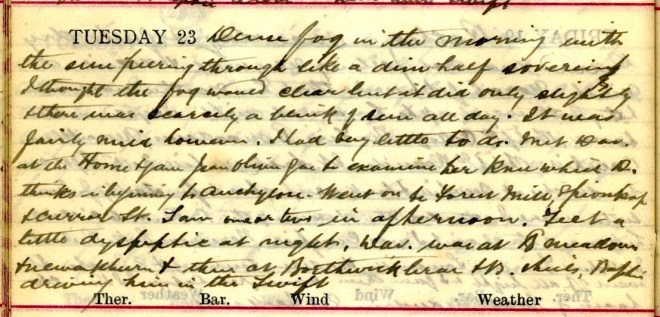 TUESDAY 23 Dense fog in the morning with
the sun peering through like a dim half sovereign
I thought the fog would clear but it did only slightly
& there was scarcely a blink of sun all day. It was
fairly mild however. I had very little to do. Met Dav.
at the Home & gave Jean chloroform to examine her knee which D.
thinks is beginning to anchylose. Went on to Forest Mill,
& Curran St. Saw one or two in afternoon. Felt a
little dyspeptic at night. Dav. was at meadows
& Newackburn & then at Borthwickbrae & B. shiels,
driving him in the Swift
Ther. Bar. Wind Weather